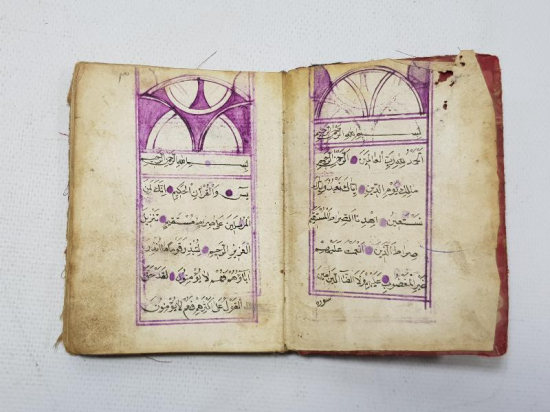 بسم الله الرحمن الرحيم
الحمد لله رب العالمين الرحمن الرحيم
ملك يوم الدين اياك نعبد واياك
نستعين اهدنا الصراط المستقيم
صراط الذين انعمت عليهم
غير المغضوب عليهم ولا الضالين امين
سورة
بسم الله الرحمن الرحيم
يس والقرآن الحكيم انك لمن
المرسلين على صراط مستقيم تنزيل
العزيز الرحيم لتنذر قوما ما انذر
اباؤهم فهم لا يؤمنون لقد حق
القول على اكثرهم فهم لا يؤمنون